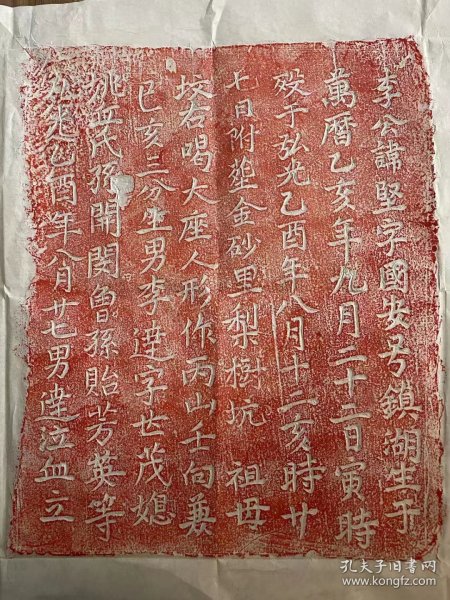 李公諱堅字國安号鎮湖生于
萬曆乙亥年九月二十二日寅時
殁于弘光乙酉年八月十二亥時廿
七日附塟金砂里梨樹坑 祖母
坟右喝大座人形作丙山壬向兼
巳亥三分生男李達字世茂媳
姚氏孫開閔魯孫貽芳英等
弘光乙酉年八月廿七男達泣血立
孔夫子旧书网
www.kongfz.com